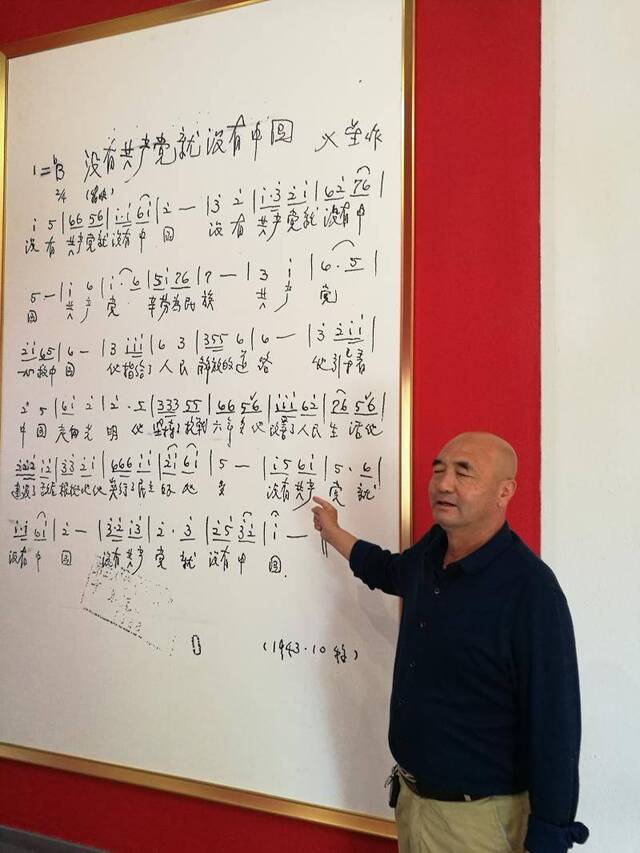 没有共产党就没有中国 火星作
1=♭B
2/4
i 5 | 66 56 | i·i 6i | 2 — | 3 2 | i·3 2i | 62 76 |
没有 共产党就没有中国 没有 共产党就没有中
5 — | i 6 | i· 6 | 5i 76 | 7 — | 3 i | 6·5 |
国 共产党 辛劳为民族 共产党
2i 65 | 6 — | 3 iii | 6 3 | 355 6 | 6 — | 3 2ii |
一心救中国 他指给了人民解放的道路 他引导着
2 5 | 6i 2 | 2·5 | 333 55 | 66 56 | iii 62 | 76 56 |
中国走向光明 他坚持了抗战六年多他改善了人民生活他
222 i2 | 33 2i | 666 ii | 2i 6i | 5 — | i5 6i | 5·6 |
建设了敌后根据地他实行了民主的好处 没有共产党就
i·i 6i | 2 — | 3·2 i3 | 2·3 | 25 32 | i — ‖
没有中国 没有共产党就没有中国.
(1943·10 稿)